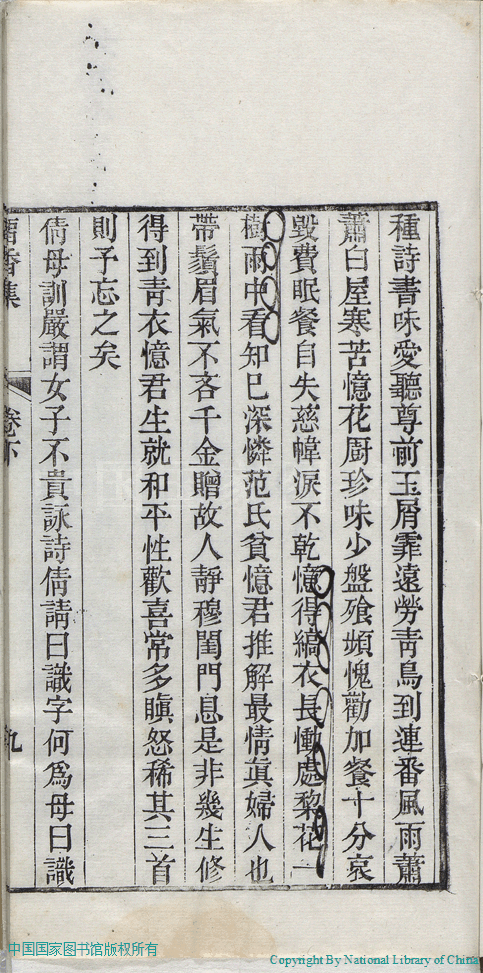 種詩書味愛聽尊前玉屑霏遠勞靑鳥到連番風雨蕭
蕭白屋寒苦憶花厨珍味少盤飱頻愧勸加餐十分哀
毀費眠餐自失慈幃淚不乾憶得縞衣長慟處棃花一
樹雨中看知已深憐范氏貧憶君推解最情眞婦人也
帶鬚眉氣不吝千金贈故人靜穆閨門息是非幾生修
得到靑衣憶君生就和平性歡喜常多瞋怒稀其三首
則予忘之矣
倩母訓嚴謂女子不貴詠詩倩請曰識字何爲母曰識
香集 卷下 九
中国国家图书馆版权所有
Copyright By National Library of China